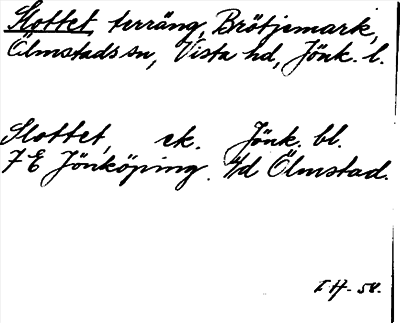 Slottet, terräng, Brötjemark,
Ölmstads sn, Vista hd, Jönk. l.
Slottet, ek. Jönk. bl.
7 E Jönköping 4/d Ölmstad.
I.H. 58.